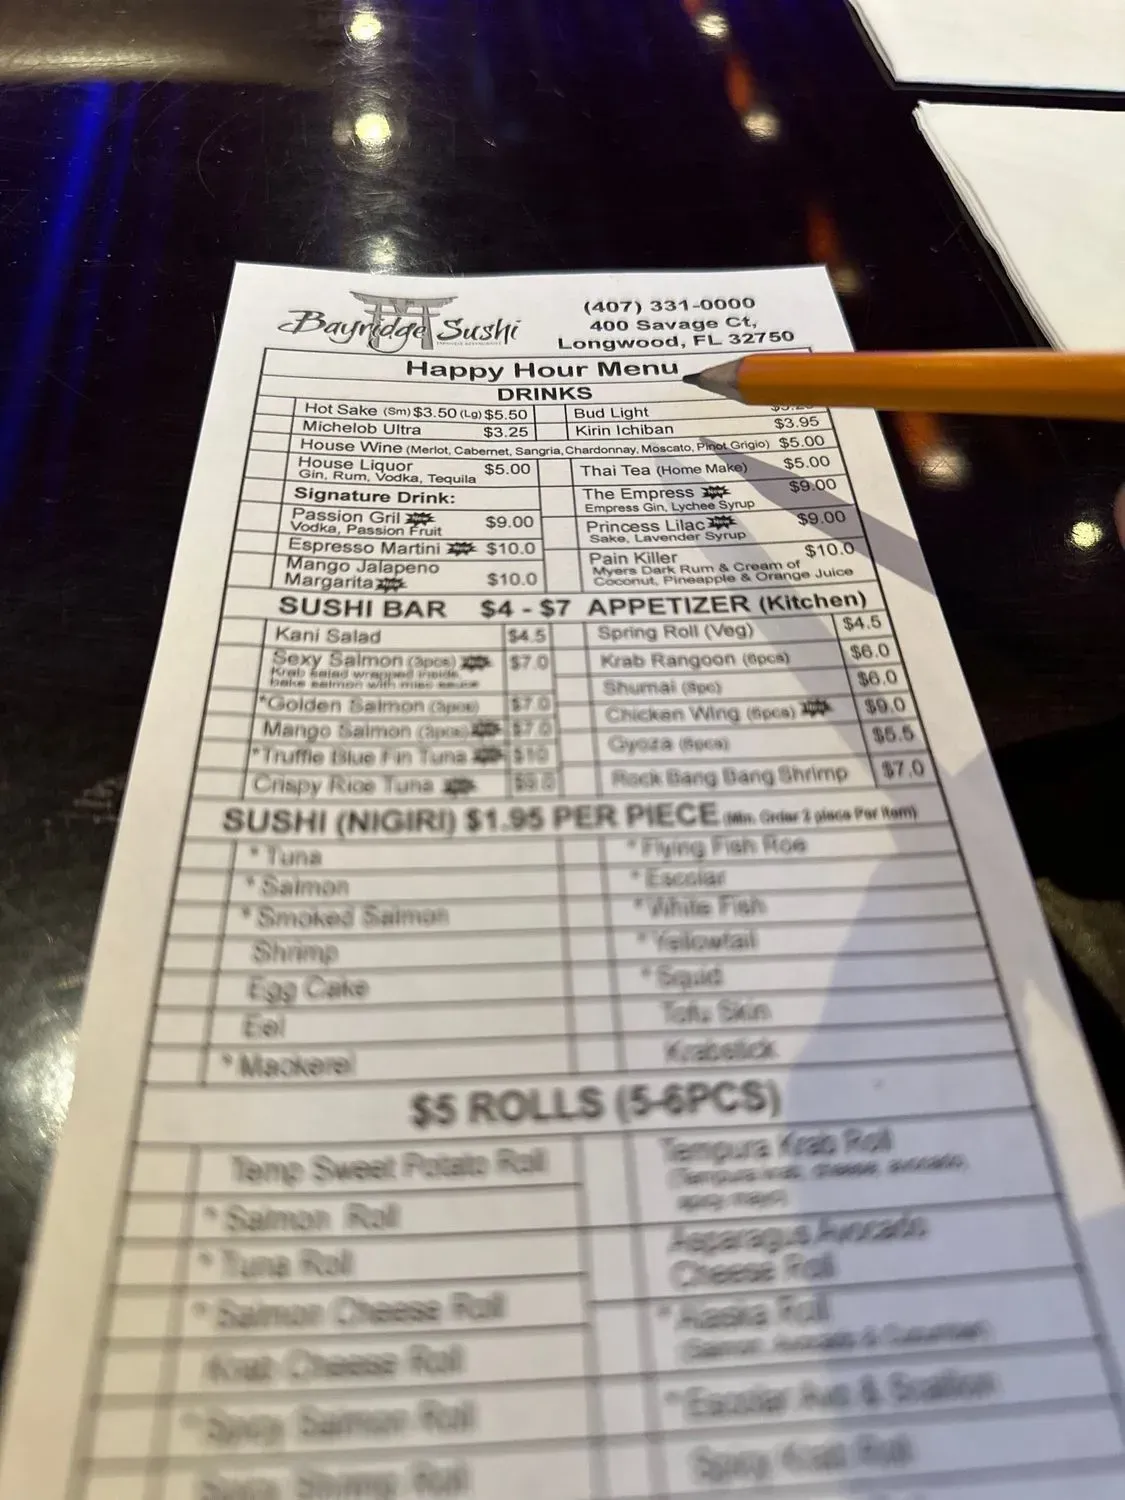 Bayridge Sushi
(407) 331-0000
400 Savage Ct,
Longwood, FL 32750
Happy Hour Menu
DRINKS
Hot Sake (Sm) $3.50 (Lg) $5.50
Bud Light
Michelob Ultra $3.25
Kirin Ichiban $3.95
House Wine (Merlot, Cabernet, Sangria, Chardonnay, Moscato, Pinot Grigio) $5.00
House Liquor $5.00
Gin, Rum, Vodka, Tequila
Thai Tea (Home Make) $5.00
Signature Drink:
The Empress $9.00
Empress Gin, Lychee Syrup
Passion Gril $9.00
Vodka, Passion Fruit
Princess Lilac $9.00
Sake, Lavender Syrup
Espresso Martini $10.0
Pain Killer $10.0
Myers Dark Rum & Cream of
Coconut, Pineapple & Orange Juice
Mango Jalapeno
Margarita $10.0
SUSHI BAR $4 - $7 APPETIZER (Kitchen)
Kani Salad $4.5
Spring Roll (Veg) $4.5
Sexy Salmon (3pcs) $7.0
Krab salad wrapped inside
bake salmon with miso sauce
Krab Rangoon (6pcs) $6.0
Shumai (8pc) $6.0
*Golden Salmon (3pcs) $7.0
Chicken Wing (6pcs) $9.0
Mango Salmon (3pcs) $7.0
Gyoza (6pcs) $5.5
*Truffle Blue Fin Tuna $10
Rock Bang Bang Shrimp $7.0
Crispy Rice Tuna $9.0
SUSHI (NIGIRI) $1.95 PER PIECE (Min. Order 2 piece Per Item)
* Tuna
* Flying Fish Roe
* Salmon
* Escolar
* Smoked Salmon
* White Fish
Shrimp
* Yellowtail
Egg Cake
* Squid
Eel
Tofu Skin
* Mackerel
Krabstick
$5 ROLLS (5-6PCS)
Temp Sweet Potato Roll
Tempura Krab Roll
(Tempura krab, cheese, avocado,
spicy mayo)
* Salmon Roll
Asparagus Avocado
Cheese Roll
* Tuna Roll
* Salmon Cheese Roll
* Alaska Roll
(Salmon, Avocado & Cucumber)
Krab Cheese Roll
* Escolar Avo & Scallion
* Spicy Salmon Roll
Spicy Krab Roll
Spicy Shrimp Roll